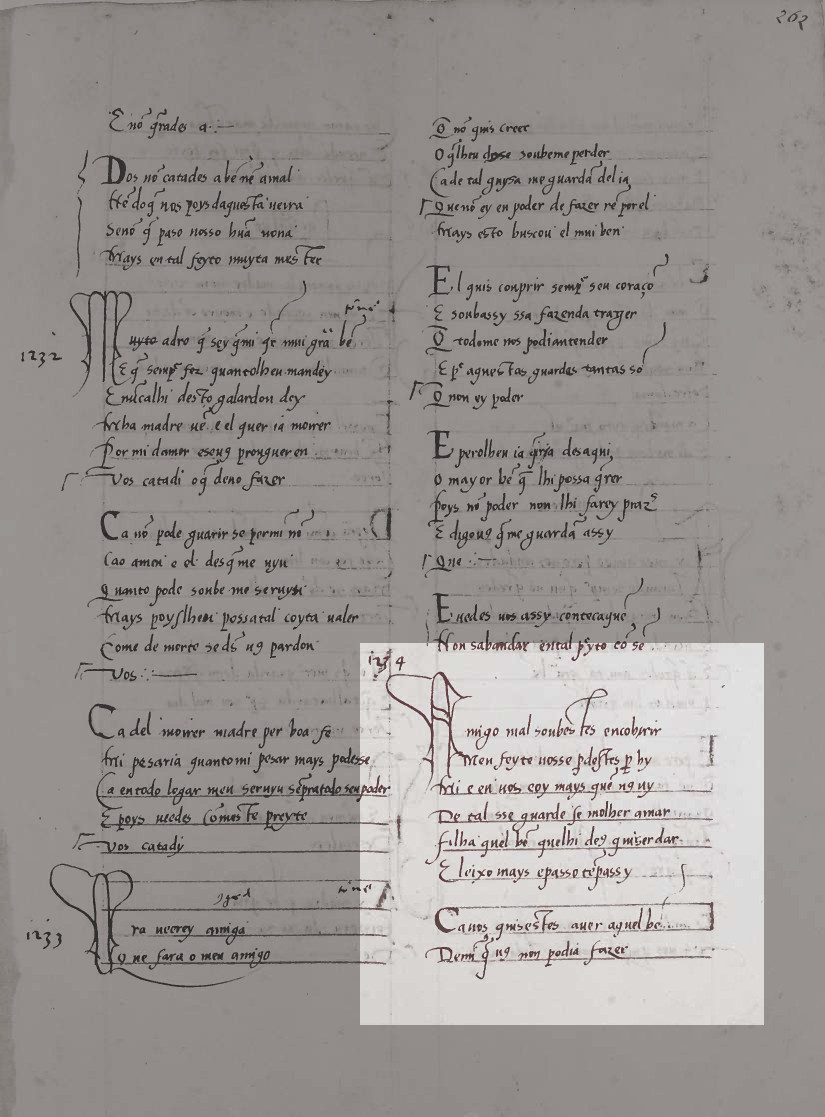 262
E nõ g̃rades a
Vos nõ catades a bẽ nẽ a mal
Nẽ do q̃ nos poys daquesta uerra
Senõ q̃ paso uosso hũa uona
Mays en tal feyto muyta mester
1232
Muyto adro q̃ sey q̃ mi q̃r mui grã bẽ
E q̃ semp̃ fez quanto lheu mandey
E nũca lhi desto galardon dey
Mha madre uẽ e el quer ia morrer
Por mi damor e seu9 prouguer en
Vos catad i o q̃ deuo fazer
Ca nõ pode guarir se per mi nõ
Ca o amen e el des q̃ me uyu
Quanto pode soube me seruyr
Mays poys lheu possa tal coyta ualer
Come de morte se ds̃ u9 pardon
Vos
Ca del morrer madre per boa fe
Mi pesaria quanto mi pesar mays podesse
Ca en todo logar meu seruyu sẽpra todo seu poder
E poys uedes comeste preyto
Vos catady
1233
Ora ueerey amiga
Que fara o meu amigo
Q̃ nõ quis creer
O q̃lheu dixe soubeme perder
Ca de tal guysa me guardã del ia
Que nõ ey en poder de fazer rẽ por el
Mays esto buscou el mui ben
El quis conprir semp̃ seu coraçõ
E soub assy ssa fazenda trager
Q̃ todome nos podiantender
E p̃r aquestas guardas tantas sõ
Q̃ non ey poder
E pero lheu ia q̃ria des aqui
O mayor bẽ q̃ lhi possa q̃rer
Poys nõ poder non lhi farey praz̃
E digou9 q̃ me guardã assy
Que
E uedes uos assy contecaque
Non sabandar en tal p̃yto cõ se
1234
Amigo mal soubestes encobrir
Meu feyte uosse p̱destes p̱ hy
Mi e eu uos e oy mays quẽ n9 uy
De tal sse guarde se molher amar
Filhaquel bẽ quelhi de9 quiser dar
E leixo mays e passo tẽpassy
Ca uos quisestes auer aquel bẽ
De mi q̃ u9 non podia fazer